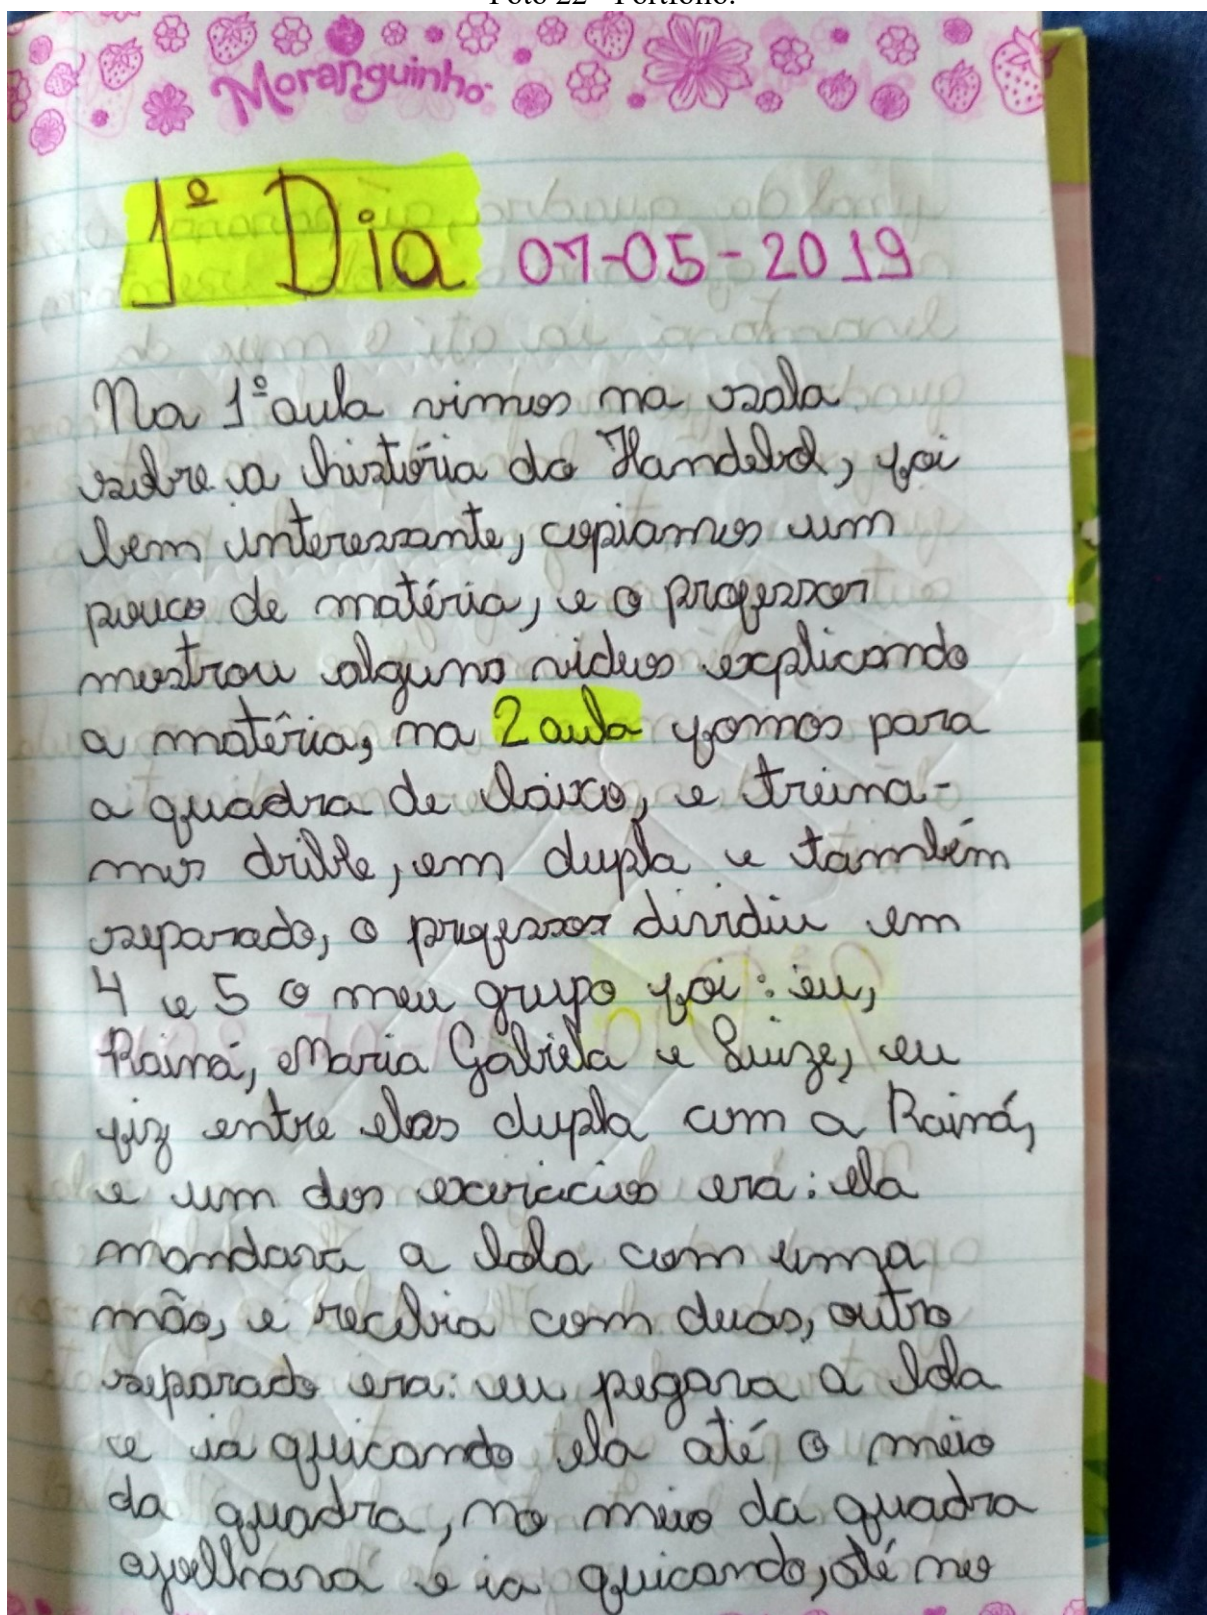 Foto 22 - Portfólio.
Moranguinho
1º Dia 07-05-2019
Na 1º aula vimos na sala
sobre a história do Handebol, foi
bem interessante, copiamos um
pouco de matéria, e o professor
mostrou alguns videos explicando
a matéria, na 2 aula fomos para
a quadra de baixo, e treina-
mos drible, em dupla e também
separado, o professor dividiu em
4 e 5 o meu grupo foi: eu,
Rainá, Maria Gabriela e Luize, eu
fiz entre elas dupla com a Rainá,
e um dos exericicios era: ela
mandava a bola com uma
mão, e recebia com duas, outro
separado era: eu pegava a bola
e ia quicando ela até o meio
da quadra, no meio da quadra
ajoelhava e ia quicando, até no